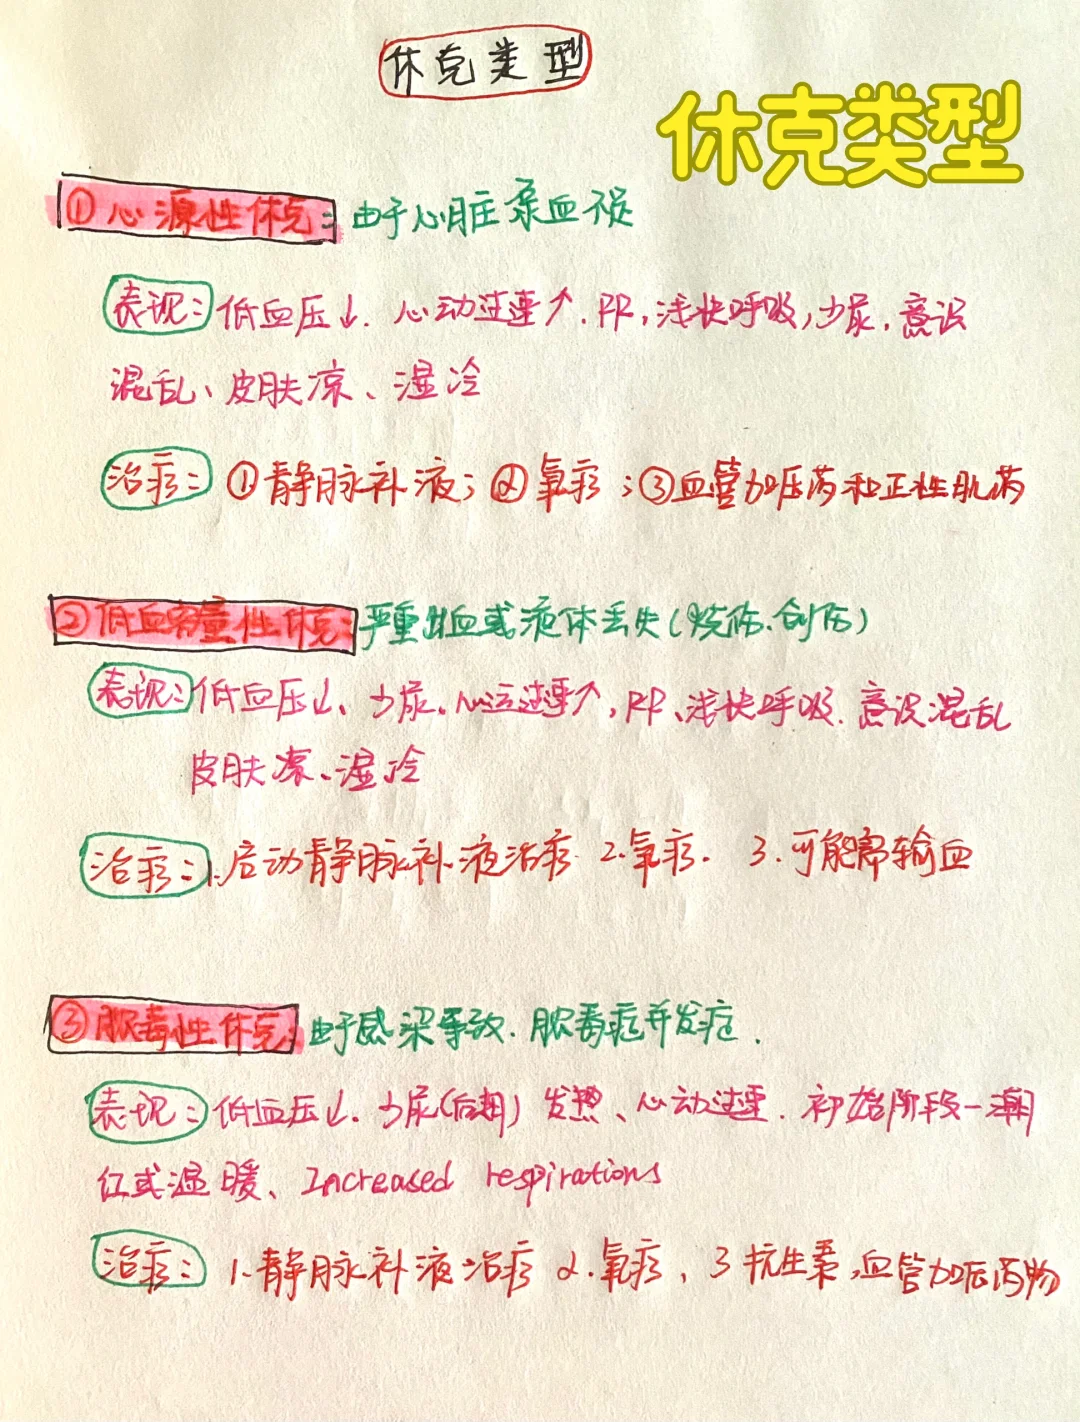 休克类型
休克类型
①心源性休克：由于心脏泵血不足
表现：低血压↓. 心动过速↑. PP, 浅快呼吸, 少尿, 意识
混乱、皮肤凉、湿冷
治疗：①静脉补液；②氧疗；③血管加压药和正性肌药
②低血容量性休克：严重出血或液体丢失(烧伤.创伤)
表现：低血压↓、少尿、心运过速↑, PP、浅快呼吸. 意识混乱
皮肤凉、湿冷
治疗：1.启动静脉补液治疗. 2.氧疗. 3.可能需输血
③脓毒性休克：由于感染导致. 脓毒症并发症.
表现：低血压↓. 少尿(后期) 发热、心动过速. 初始阶段－潮
红或温暖、Increased respirations
治疗：1.静脉补液治疗 2.氧疗、3 抗生素,血管加压药物